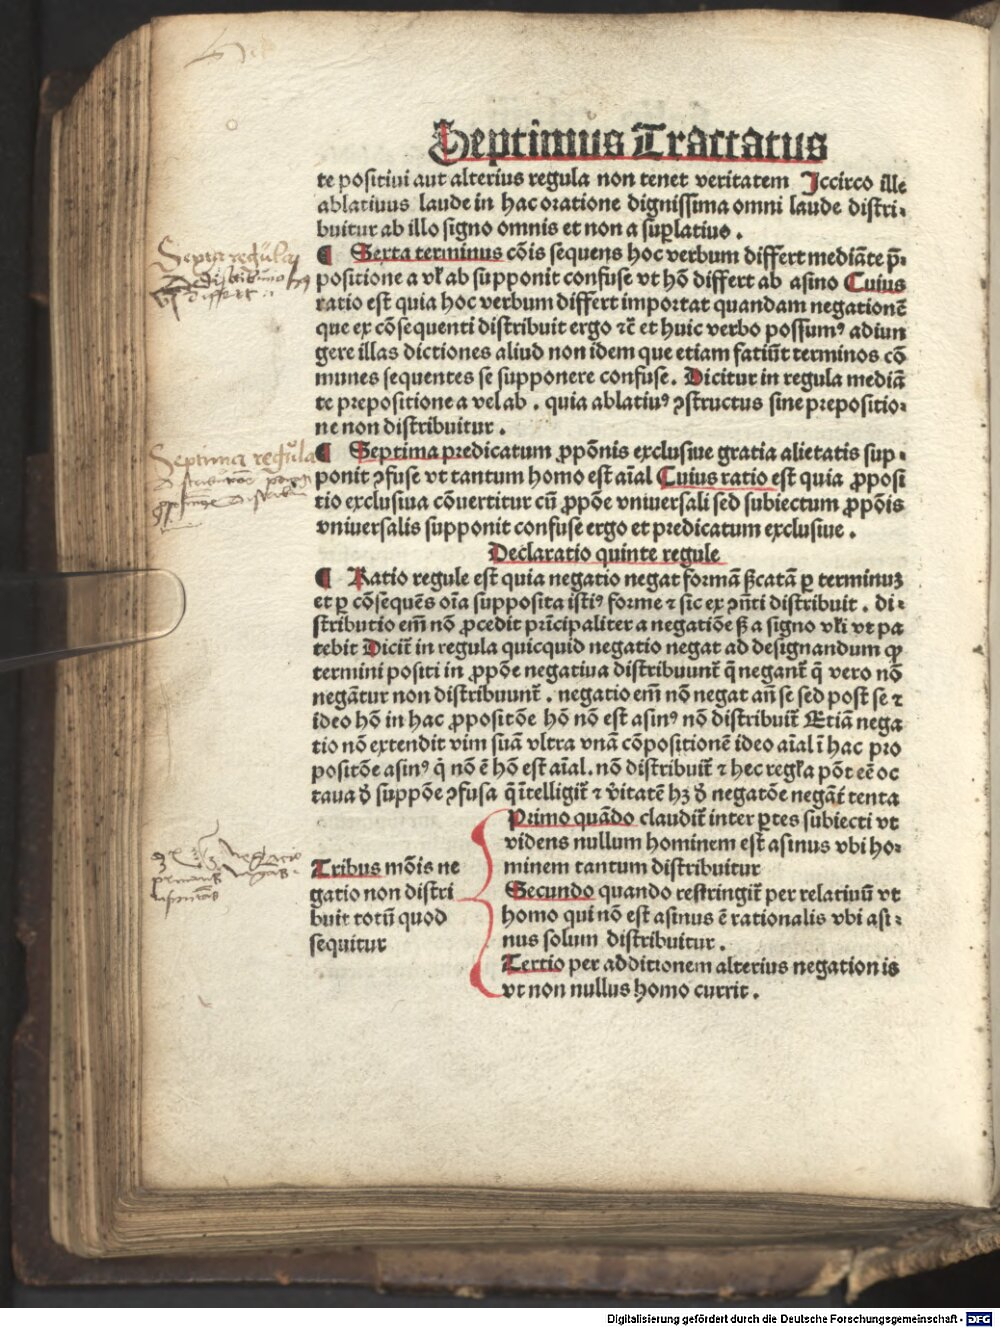 Septimus Tractatus
te positiui aut alterius regula non tenet veritatem Iccirco ille
ablatiuus laude in hac oratione dignissima omni laude distri⸗
buitur ab illo signo omnis et non a suplatiuo .
¶ Sexta terminus cōis sequens hoc verbum differt mediāte p̄⸗
positione a vł ab supponit confuse vt hō differt ab asino Cuius
ratio est quia hoc verbum differt importat quandam negationē
que ex cōsequenti distribuit ergo ⁊c̄ et huic verbo possumꝰ adiun
gere illas dictiones aliud non idem que etiam faciūt terminos cō
munes sequentes se supponere confuse . Dicitur in regula mediā
te prepositione a vel ab . quia ablatiuꝰ ꝯstructus sine prepositio⸗
ne non distribuitur .
¶ Septima predicatum ꝓpōnis exclusiue gratia alietatis sup⸗
ponit ꝯfuse vt tantum homo est aīal Cuius ratio est quia ꝓposi
tio exclusiua cōuertitur cū ꝓpōe vniuersali sed subiectum ꝓpōis
vniuersalis supponit confuse ergo et predicatum exclusiue .
Declaratio quinte regule
¶ Ratio regule est quia negatio negat formā ßcatā ꝑ terminuꝫ
et ꝑ cōsequēs oīa supposita istiꝰ forme ⁊ sic ex ꝯn̄ti distribuit . di⸗
stributio em̄ nō ꝓcedit prīcipaliter a negatiōe ß a signo vłi vt pa
tebit Dicit̄ in regula quicquid negatio negat ad designandum ꝙ
termini positi in ꝓpōe negatiua distribuunt̄ q̄ negant̄ q̄ vero nō
negātur non distribuunt̄ . negatio em̄ nō negat an̄ se sed post se ⁊
ideo hō in hac ꝓpositōe hō nō est asinꝰ nō distribuit̄ Etiā nega
tio nō extendit vim suā vltra vnā cōpositionē ideo aīal ī hac pro
positōe asinꝰ q̄ nō ē hō est aīal . nō distribuit̄ ⁊ hec regła pōt eē oc
taua ð suppōe ꝯfusa q̄ ītelligit̄ ⁊ v̄itatē hꝫ ð negatōe negāt̄ tenta
Primo quādo claudit̄ inter ꝑtes subiecti vt
videns nullum hominem est asinus vbi ho⸗
minem tantum distribuitur
Tribus mōis ne
gatio non distri
buit totū quod
sequitur
Secundo quando restringit̄ per relatiuū vt
homo qui nō est asinus ē rationalis vbi asi⸗
nus solum distribuitur .
Tertio per additionem alterius negationis
vt non nullus homo currit .
Septima regula
Digitalisierung gefördert durch die Deutsche Forschungsgemeinschaft - DFG